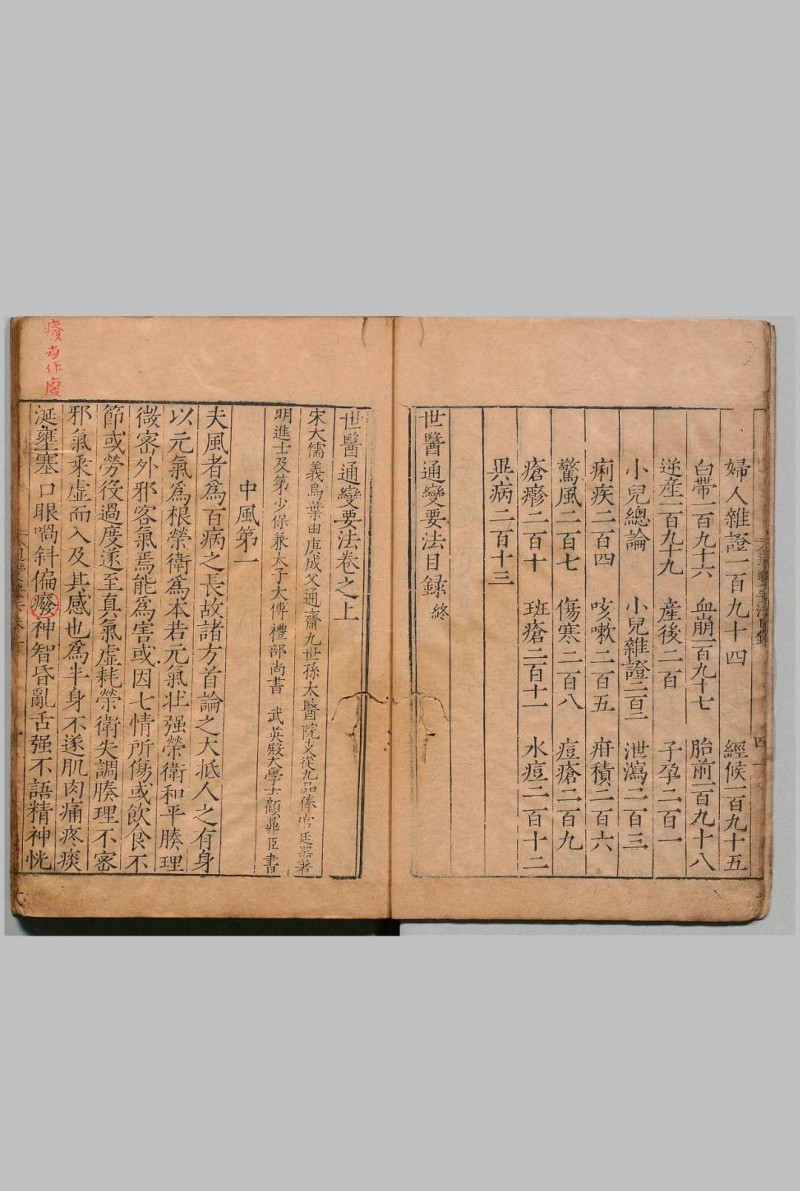 婦人雜證一百九十四 經候一百九十五
白帶一百九十六 血崩一百九十七 胎前一百九十八
逆産一百九十九 産後二百 子孕二百一
小兒總論 小兒雜證二百二 泄瀉二百三
痢疾二百四 咳嗽二百五 疳積二百六
驚風二百七 傷寒二百八 痘瘡二百九
瘡疹二百十 班瘡二百十一 水痘二百十二
異病二百十三
世醫通變要法目錄終
世醫通變要法卷之上
宋大儒義烏葉由庚成父通齋九世孫太醫院支從九品俸官廷器著
明進士及第少保兼太子太傅禮部尚書 武英殿大學士顧鼎臣書
中風第一
夫風者爲百病之長故諸方首論之大抵人之有身
以元氣爲根榮衛爲本若元氣壮强榮衛和平腠理
緻密外邪客氣焉能爲害或因七情所傷或飲食不
節或勞役過度遂至真氣虛耗榮衛失調腠理不密
邪氣乘虛而入及其感也爲半身不遂肌肉痛疼痰
涎壅塞口眼喎斜偏癈神智昏亂舌强不語精神恍
癈当作廢